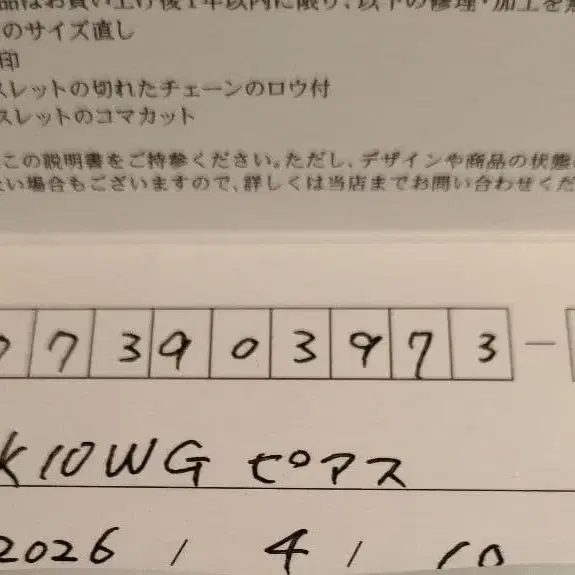 品はお買い上げ後1年以内に限り、以下の修理・加工を無
のサイズ直し
印
スレットの切れたチェーンのロウ付
スレットのコマカット
この説明書をご持参ください。ただし、デザインや商品の状態
い場合もございますので、詳しくは当店までお問い合わせくだ
7 7 3 9 0 3 9 7 3 —
K10WG ピアス
2026 / 4 / 10